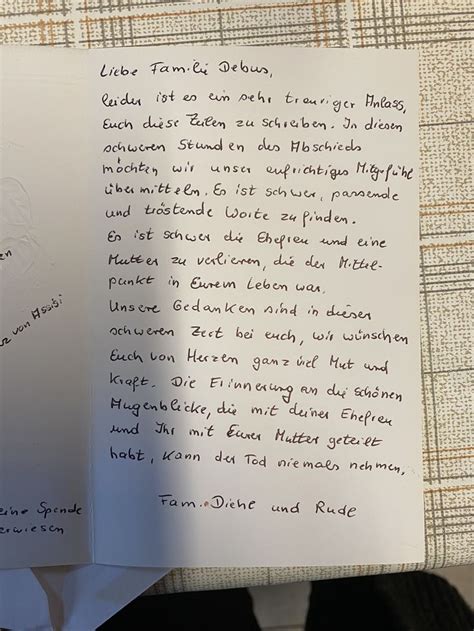 Liebe Familie Debus,
leider ist es ein sehr trauriger Anlass,
Euch diese Zeilen zu schreiben. In diesen
schweren Stunden des Abschieds
möchten wir unser aufrichtiges Mitgefühl
übermitteln. Es ist schwer, passende
und tröstende Worte zu finden.
Es ist schwer die Ehefrau und eine
Mutter zu verlieren, die der Mittel-
punkt in Eurem Leben war.
Unsere Gedanken sind in dieser
schweren Zeit bei euch, wir wünschen
Euch von Herzen ganz viel Mut und
Kraft. Die Erinnerung an die schönen
Augenblicke, die mit deiner Ehefrau
und Ihr mit Eurer Mutter geteilt
habt, kann der Tod niemals nehmen.
Fam. Diehe und Rude
en
z von Assisi
eine Spende
erwiesen